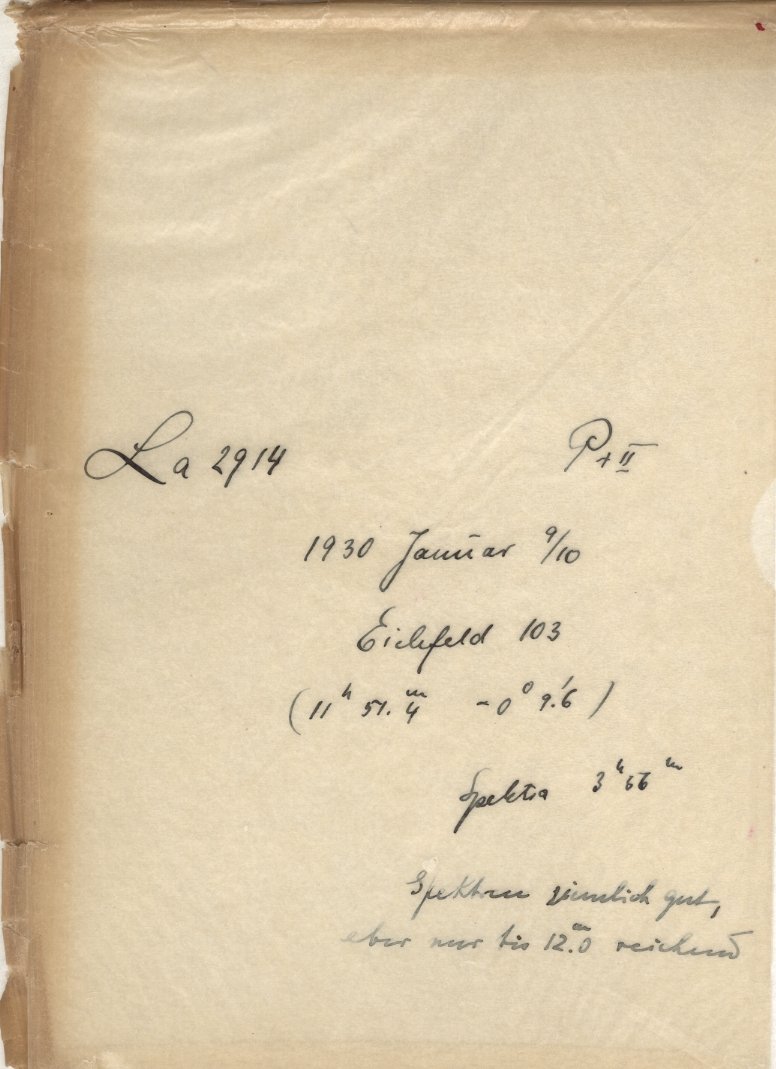 La 2914 P+II
1930 Januar 9/10
Eichfeld 103
(11ʰ 51.ᵐ4 -0⁰ 9.′6)
Spektra 3ʰ 56ᵐ
Spektren ziemlich gut,
aber nur bis 12.ᵐ0 reichend